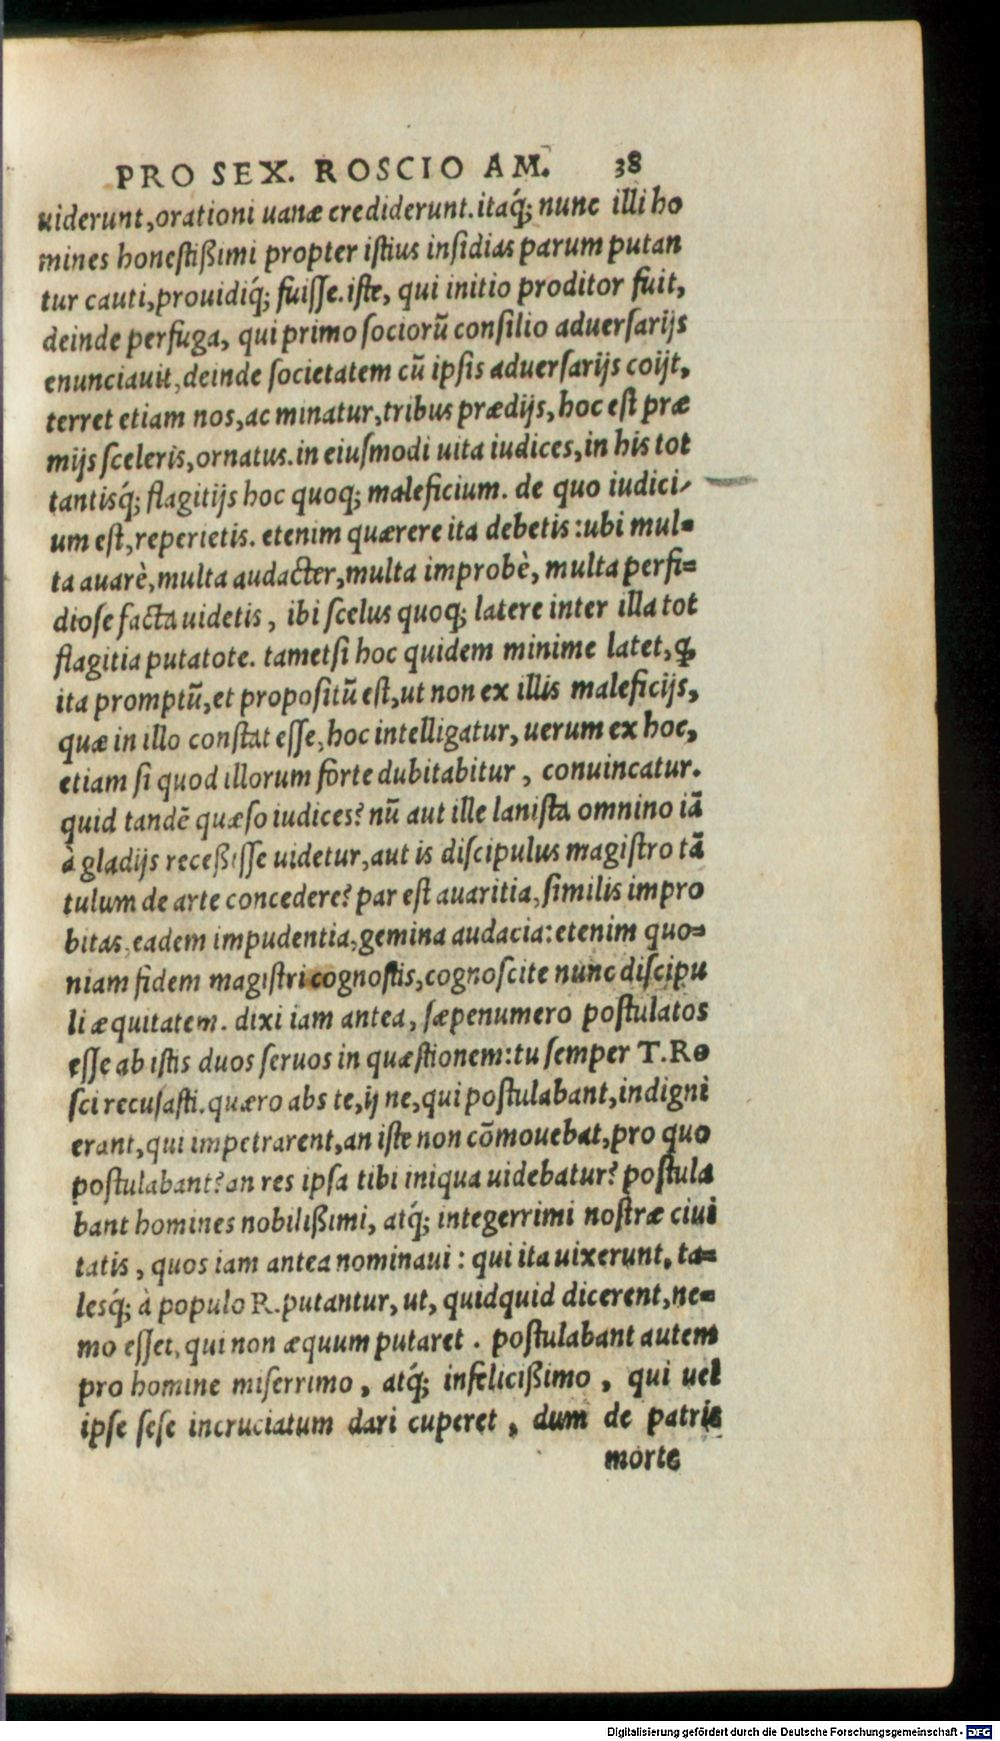 PRO SEX. ROSCIO AM. 38
uiderunt,orationi uanæ crediderunt.itaq́; nunc illi ho
mines honestißimi propter istius insidias parum putan
tur cauti,prouidiq́; fuisse.iste, qui initio proditor fuit,
deinde perfuga, qui primo sociorũ consilio aduersarijs
enunciauit,deinde societatem cũ ipsis aduersarijs coijt,
terret etiam nos,ac minatur,tribus prædijs,hoc est præ
mijs sceleris,ornatus.in eiusmodi uita iudices,in his tot
tantisq́; flagitijs hoc quoq; maleficium. de quo iudici-
um est,reperietis. etenim quærere ita debetis:ubi mul=
ta auarè,multa audacter,multa improbè, multa perfi=
diose facta uidetis, ibi scelus quoq; latere inter illa tot
flagitia putatote. tametsi hoc quidem minime latet,ꝙ
ita promptũ,et propositũ est,ut non ex illis maleficijs,
quæ in illo constat esse,hoc intelligatur, uerum ex hoc,
etiam si quod illorum forte dubitabitur, conuincatur.
quid tandẽ quæso iudices? nũ aut ille lanista omnino iã
à gladijs receßisse uidetur,aut is discipulus magistro tã
tulum de arte concedere? par est auaritia,similis impro
bitas,eadem impudentia,gemina audacia:etenim quo=
niam fidem magistri cognostis,cognoscite nunc discipu
li æquitatem. dixi iam antea, sæpenumero postulatos
esse ab istis duos seruos in quæstionem:tu semper T.Ro
sci recusasti.quæro abs te,ij ne,qui postulabant,indigni
erant,qui impetrarent,an iste non cõmouebat,pro quo
postulabant?an res ipsa tibi iniqua uidebatur? postula
bant homines nobilißimi, atq́; integerrimi nostræ ciui
tatis, quos iam antea nominaui: qui ita uixerunt, ta=
lesq́; à populo R.putantur, ut, quidquid dicerent,ne=
mo esset,qui non æquum putaret. postulabant autem
pro homine miserrimo, atq́; infelicißimo, qui uel
ipse sese incruciatum dari cuperet, dum de patris
morte
Digitalisierung gefördert durch die Deutsche Forschungsgemeinschaft - DFG